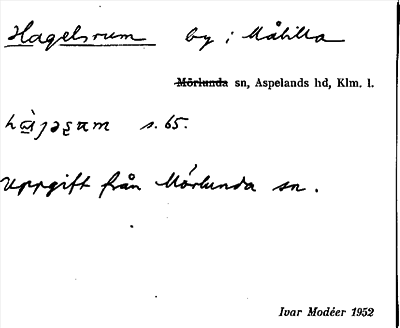 Hagelsrum by i Målilla
Mörlunda sn, Aspelands hd, Klm. l.
s. 65.
Uppgift från Mörlunda sn.
Ivar Modéer 1952